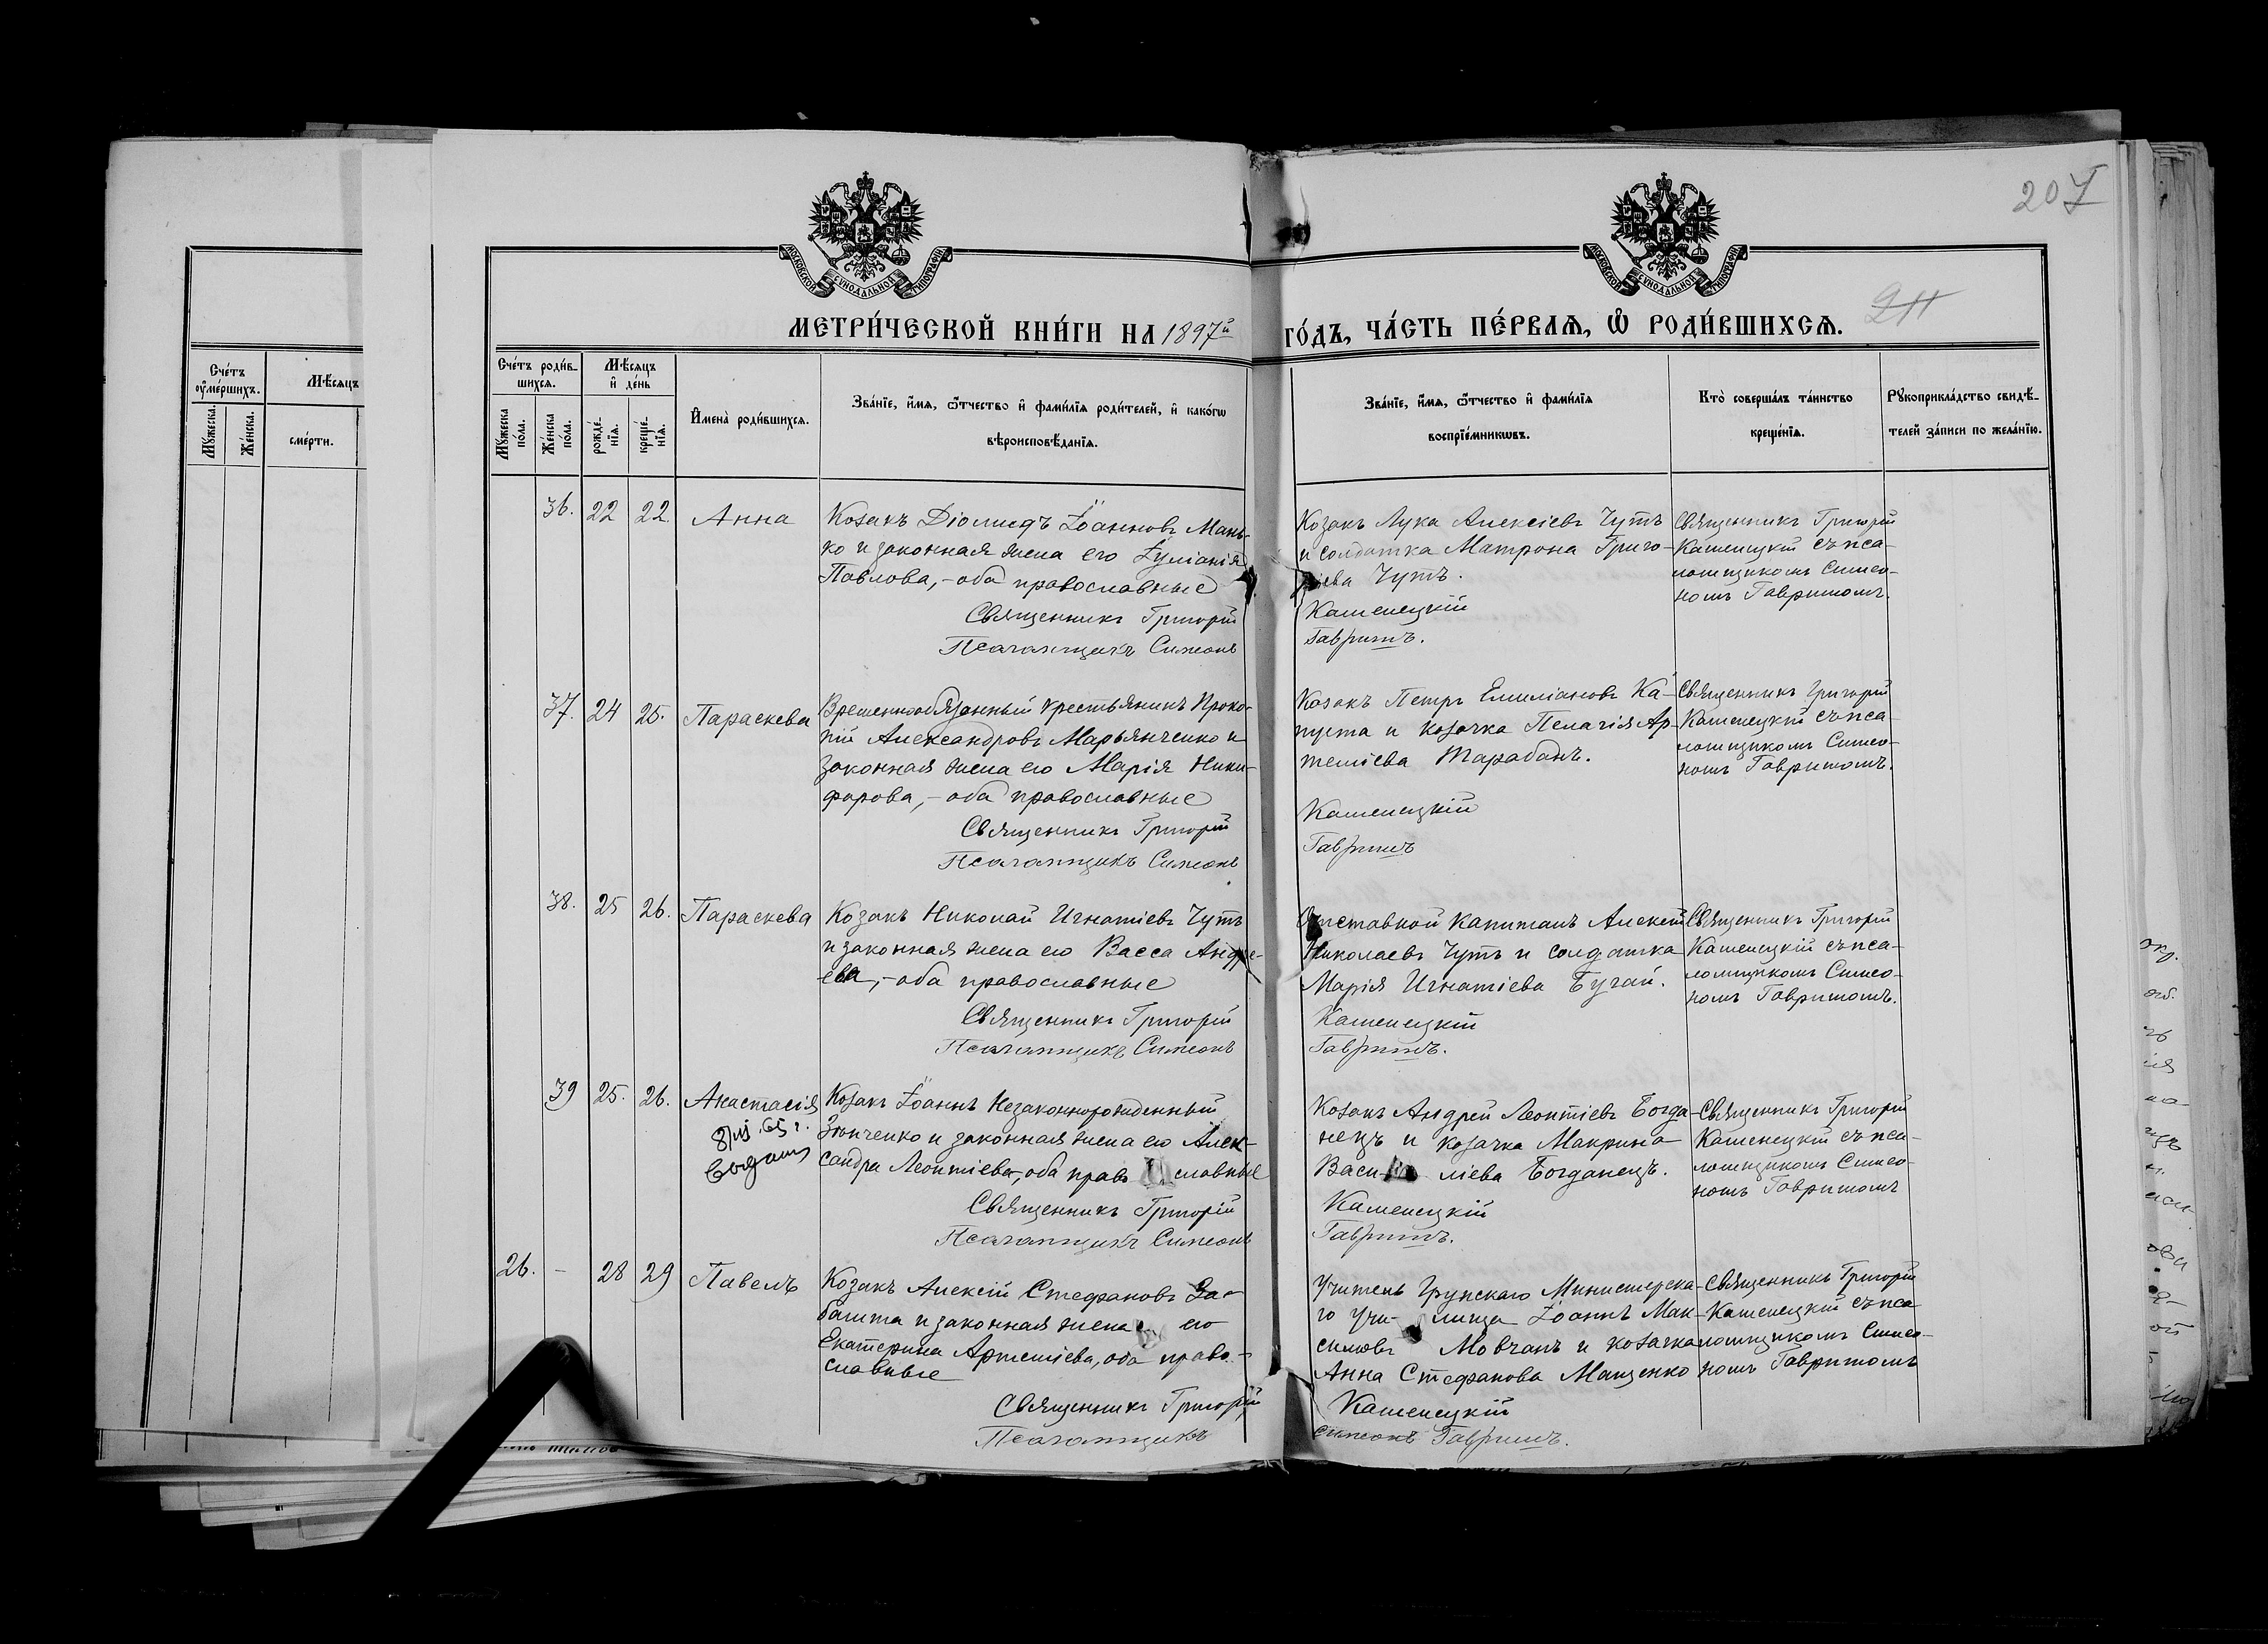 207
МОСКОВСКОЙ СУНОДАЛЬНОЙ ТИПОГРАФІИ
МОСКОВСКОЙ СУНОДАЛЬНОЙ ТИПОГРАФІИ
МЕТРИ́ЧЕСКОЙ КНИ́ГИ НА 1897й ГО́ДЪ, ЧА́СТЬ ПЕ́РВАЯ, Ѡ РОДИ́ВШИХСЯ.
211
Сче́тъ ᲂумершихъ.
Мѣ́сяцъ
Мꙋ́жеска.
Же́нска.
сме́рти.
Сче́тъ роди́в-
шихся.
Мѣ́сяцъ
и҆ де́нь
Мꙋ́жеска по́ла.
Же́нска по́ла.
рожде́-
нїя.
креще́-
нїя.
И҆мена̀ роди́вшихся.
Зва́нїе, и҆́мя, ѻ҆́тчество и҆ фами́лїя роди́телей, и҆ како́гѡ
вѣроисповѣ́данїя.
Зва́нїе, и҆́мя, ѻ҆́тчество и҆ фами́лїя
воспрїе́мникѡвъ.
Кто̀ соверша́лъ та́инство
креще́нїя.
Рꙋкоприкла́дство свидѣ́-
телей за́писи по жела́нїю.
36. 22 22 Анна
Козакъ Діомидъ Іоанновъ Мань-
ко и законная жена его Іуліанія
Павлова, - оба православные
Священникъ Григорій
Псаломщикъ Симеонъ
Козакъ Лука Алексіевъ Чутъ
и солдатка Матрона Григо-
ріева Чутъ.
Каменецкій
Гавришъ.
Священникъ Григорій
Каменецкій съ пса-
ломщикомъ Симео-
номъ Гавришомъ.
37. 24 25. Параскева
Временнообязанный крестьянинъ Проко-
пій Александровъ Марьянченко и
законная жена его Марія Ники-
форова, - оба православные
Священникъ Григорій
Псаломщикъ Симеонъ
Козакъ Петръ Емиліановъ Ка-
пуста и козачка Пелагія Ар-
теміева Тарабанъ.
Каменецкій
Гавришъ
Священникъ Григорій
Каменецкій съ пса-
ломщикомъ Симео-
номъ Гавришомъ.
38. 25 26. Параскева
Козакъ Николай Игнатіевъ Чутъ
и законная жена его Васса Андре-
ева, - оба православные
Священникъ Григорій
Псаломщикъ Симеонъ
Отставной капитанъ Алексій
Николаевъ Чутъ и солдатка
Марія Игнатіева Бугай.
Каменецкій
Гавришъ.
Священникъ Григорій
Каменецкій съ пса-
ломщикомъ Симео-
номъ Гавришомъ.
39 25. 26. Анастасія
Козакъ Іоаннъ Незаконнорожденный
Зінченко и законная жена его Алек-
сандра Леонтіева, оба право славные
Священникъ Григорій
Псаломщикъ Симеонъ
Козакъ Андрей Леонтіевъ Богда-
нецъ и козачка Макрина
Васи- ліева Богданецъ.
Каменецкій
Гавришъ.
Священникъ Григорій
Каменецкій съ пса-
ломщикомъ Симео-
номъ Гавришомъ
26. - 28 29 Павелъ
Козакъ Алексій Стефановъ За-
башта и законная жена его
Екатерина Артеміева, оба право-
славные
Священникъ Григорій
Псаломщикъ
Учитель Грунскаго Министерска-
го Учи- лища Іоаннъ Мак-
симовъ Мовчанъ и козачка
Анна Стефанова Мащенко
Каменецкій
Симеонъ Гавришъ.
Священникъ Григорій
Каменецкій съ пса-
ломщикомъ Симео-
номъ Гавришомъ